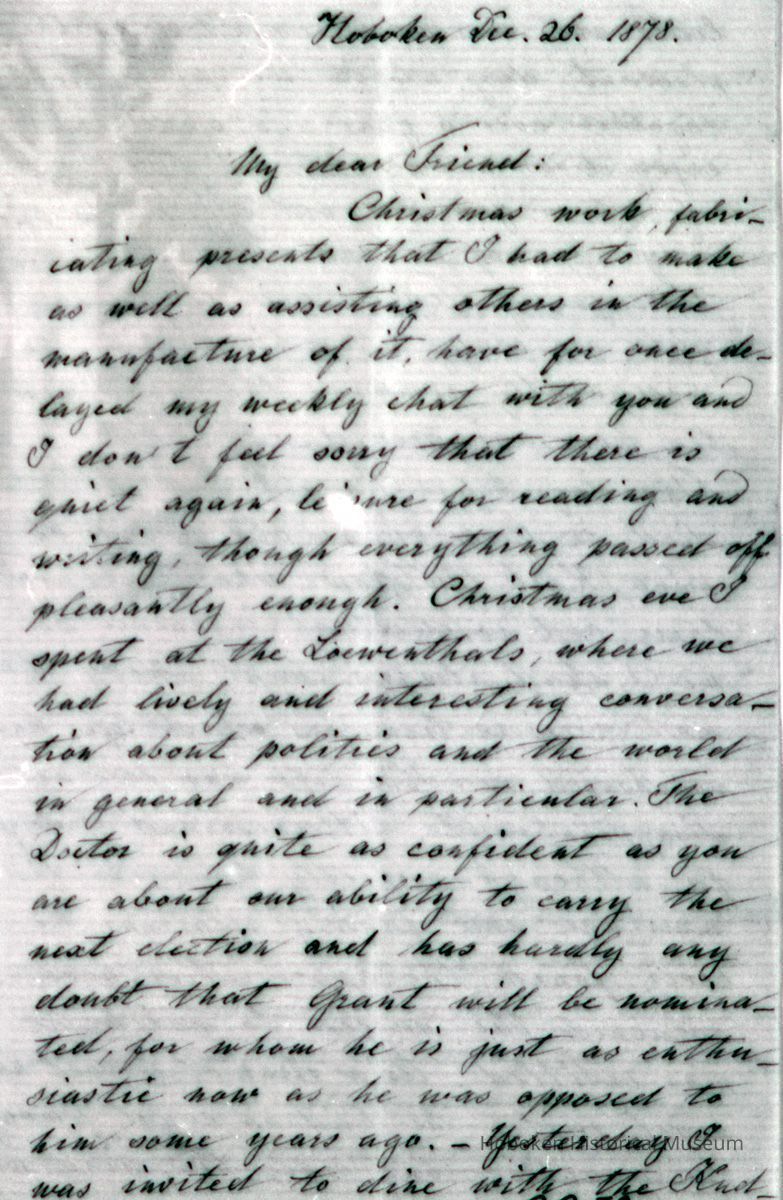 Hoboken Dec. 26. 1878.
My dear Friend:
Christmas work, fabri-
cating presents that I had to make
as well as assisting others in the
manufacture of it, have for once de-
layed my weekly chat with you and
I don't feel sorry that there is
quiet again, leisure for reading and
writing, though everything passed off
pleasantly enough. Christmas eve I
spent at the Loewenthals, where we
had lively and interesting conversa-
tion about politics and the world
in general and in particular. The
Doctor is quite as confident as you
are about our ability to carry the
next election and has hardly any
doubt that Grant will be nomina-
ted, for whom he is just as enthu-
siastic now as he was opposed to
him some years ago. – Yesterday I
was invited to dine with the
Hoboken Historical Museum